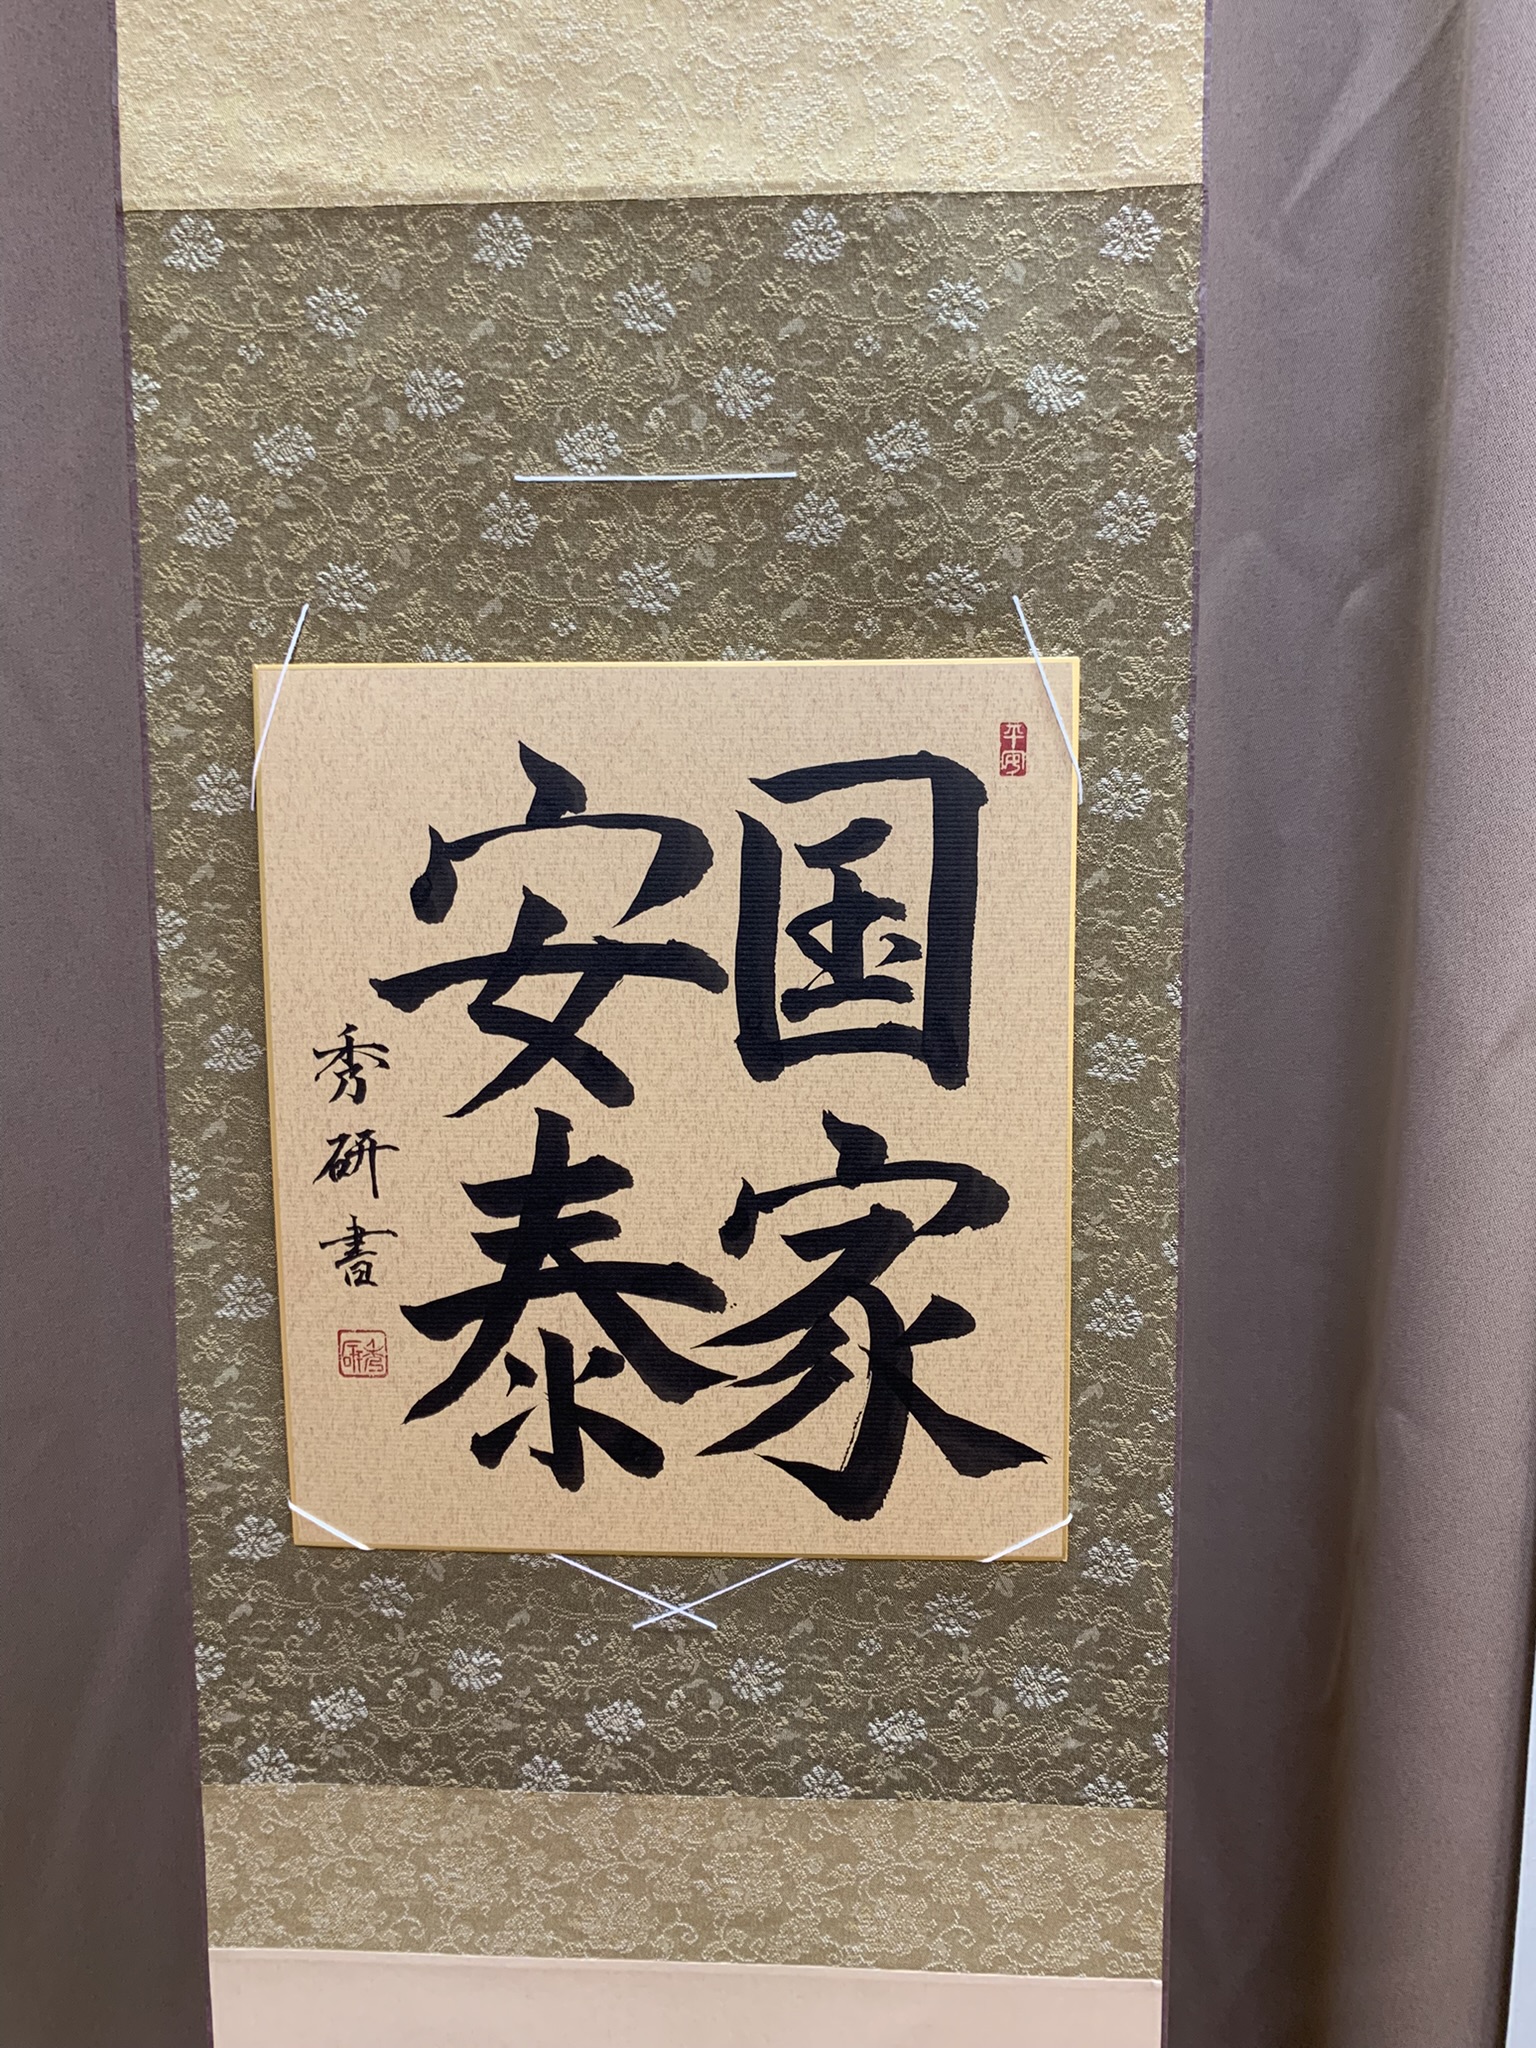 平安
国家
安泰
秀研書
秀研